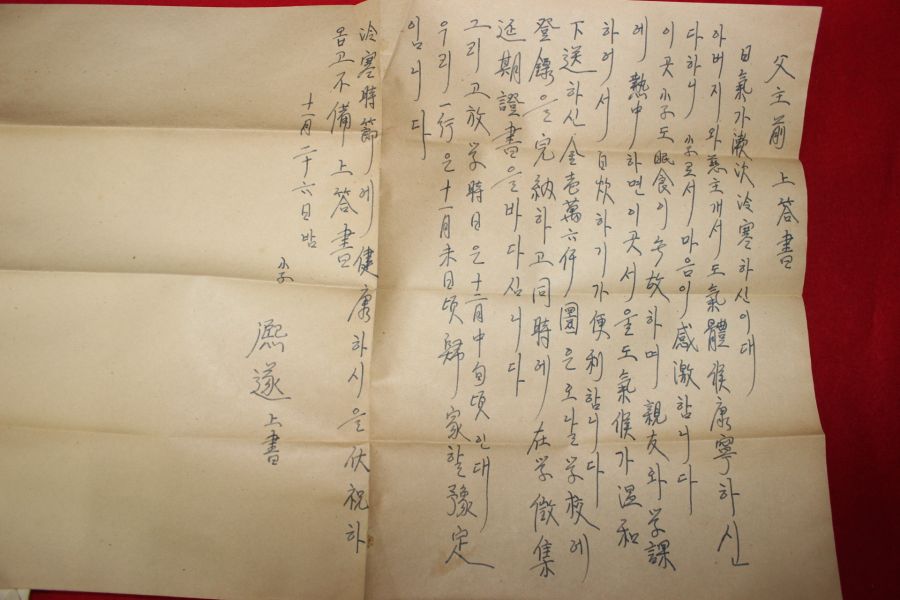 父主前 上答書
日氣가 漱次 冷寒하신이대
아버지와 慈主개서도 氣體候康寧하신
다하니 子로서 마음이 感激함니다
이곳 小子도 眠食이 무故하며 親友와 学課
에 熱中하면 이곳 서울도 氣候가 温和
하여서 自炊하기가 便利함니다
下送하신 金壱萬六仟圜은 오날 学校에
登錄을 完納하고 同時에 在学徵集
延期證書을 바다심니다
그리고 放学時日은 十二月中旬頃인대
우리一行은 十一月末日頃 歸家할 豫定
임니다
冷寒時節에 健康하시을 伏祝하
옵고 不備上答書
十一月二十六日 밤
小子
熙遂 上書